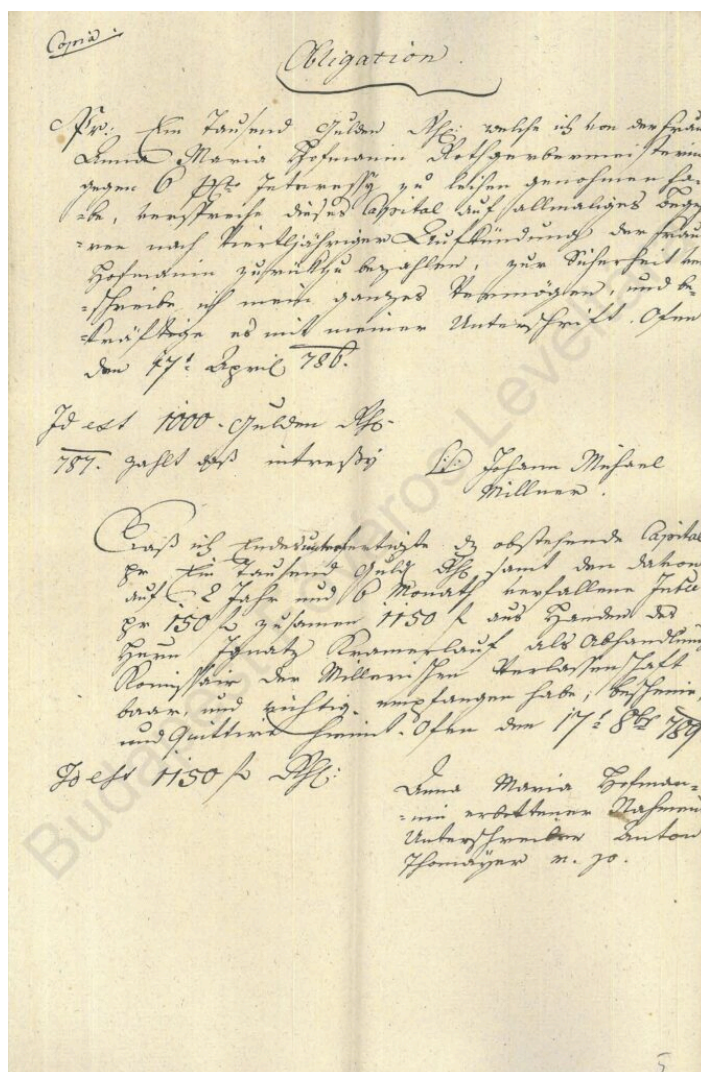 Copia
Obligation.
Pr: Ein Tausend Gulden Rh: welche ich von der Frau
Anna Maria Hofmanin Rothgerbermeisterin
gegen 6 pto Interessy zu leihen genohmen ha-
-be, verspreche dieses Capital auf allmaliges Bege-
-ren nach viertljähriger Aufkündung der Frau
Hofmanin zurükzubezahlen, zur Sicherheit ver
-schreibe ich mein ganzes Vermögen, und be-
-kräftige es mit meiner Unterschrift. Ofen
den 17t April 786.
Id est 1000 - Gulden Rh:
787. zahlt daß intressy
Johann Michael
Millner.
Daß ich Endesunterfertigte dz obstehende Capital
pr Ein Tausend Guld Rh: samt den davon
auf 2 Jahr und 6 Monath verfallene Inter
pr 150 f zusamen 1150 f aus Handen des
Herrn Ignatz Kramerlauf als Abhandlung
Komissair der Millerischen Verlassenschaft
baar, und richtig empfangen habe, bescheine,
und Quittire hiemit. Ofen den 17t 8br 789
Id est 1150 f Rh:
Anna Maria Hofman-
-nin erbettener Nahmens
Unterschreiber Anton
Thomayer m. p.
5
Budapest Főváros Levél